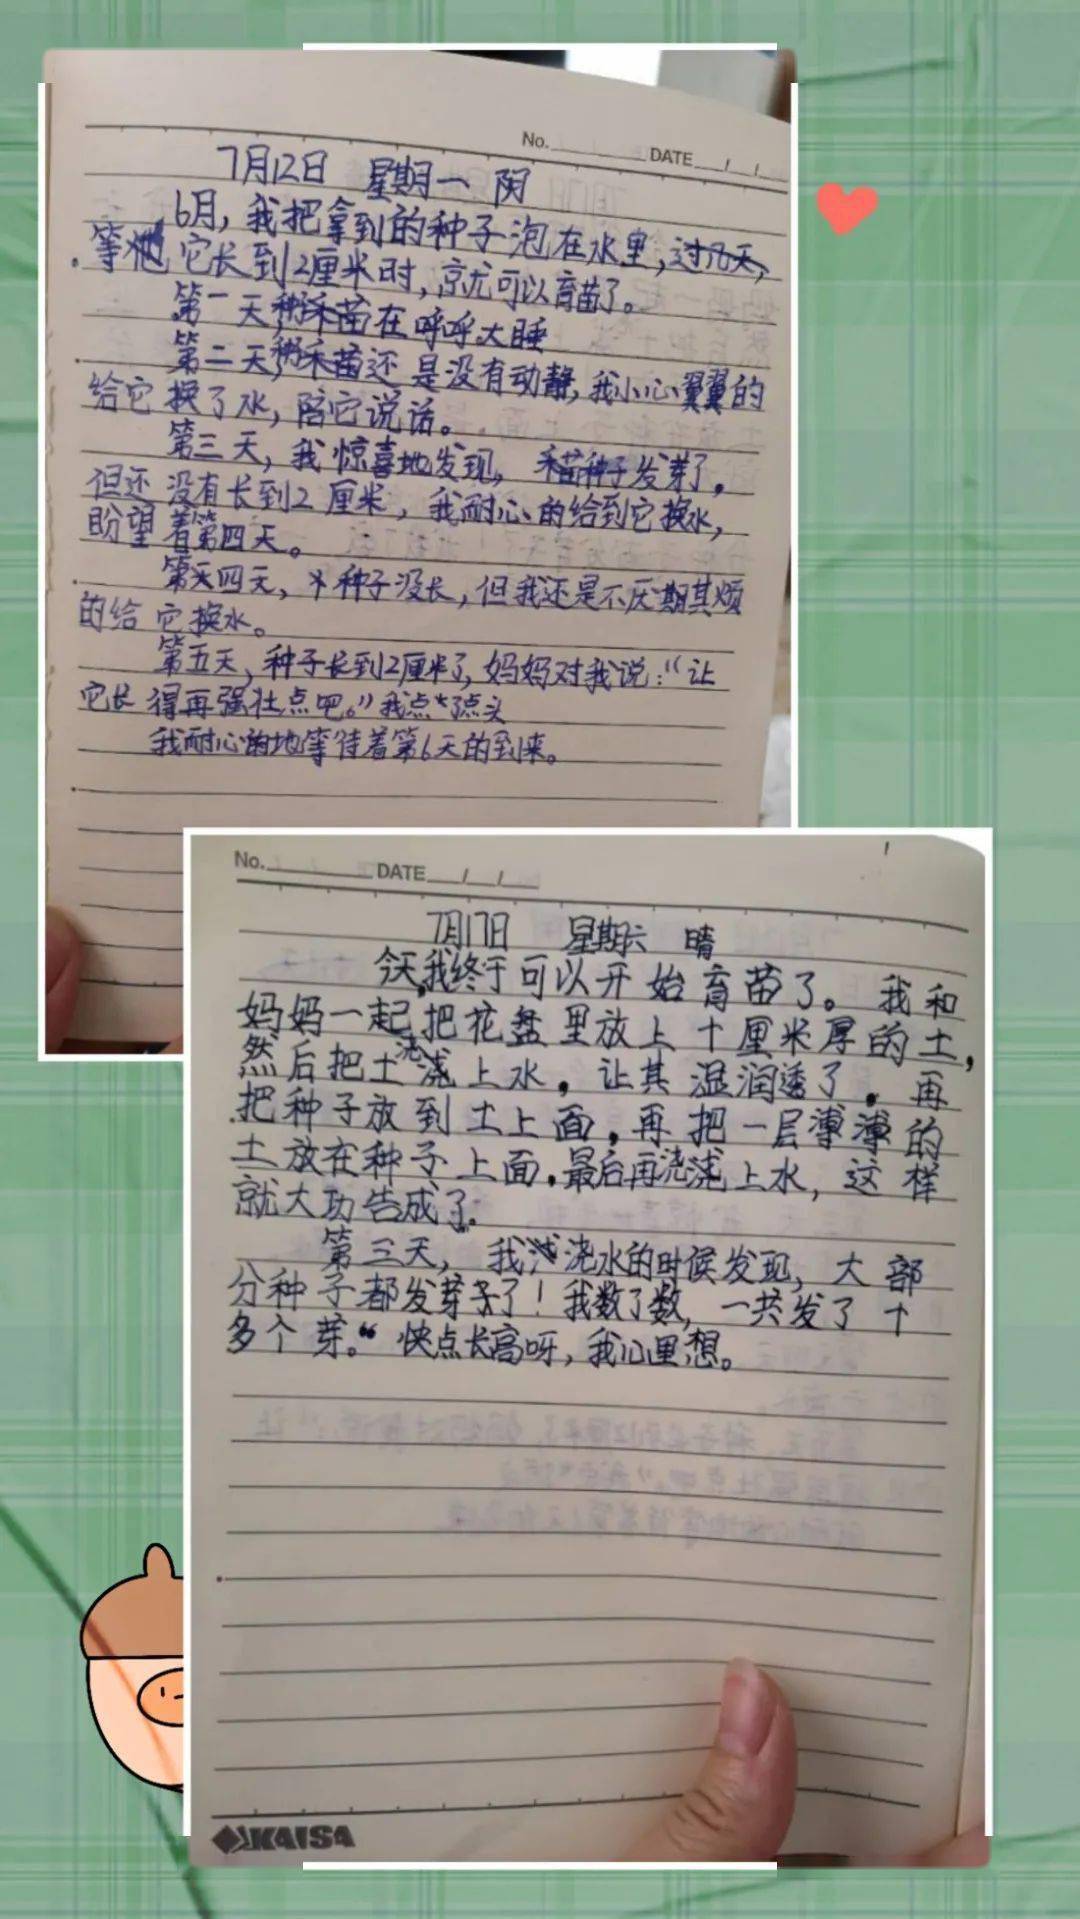 No. DATE / /
7月12日 星期一 阴
6月，我把拿到的种子泡在水里，过几天，
等 它长到2厘米时，就可以育苗了。
第一天，禾苗在呼呼大睡
第二天，禾苗还是没有动静，我小心翼翼的
给它换了水，陪它说话。
第三天，我惊喜地发现，种子发芽了，
但还没有长到2厘米，我耐心的给到它换水，
盼望着第四天。
第四天，种子没长，但我还是不厌期其烦
的给它换水。
第五天，种子长到2厘米了，妈妈对我说：“让
它长得再强壮点吧。”我点了点头
我耐心的地等待着第6天的到来。
No. DATE / /
7月17日 星期六 晴
今天，我终于可以开始育苗了。我和
妈妈一起，把花盘里放上十厘米厚的土，
然后把土浇上水，让其湿润透了，再
把种子放到土上面，再把一层薄薄的
土放在种子上面，最后再浇上水，这样
就大功告成了。
第三天，我浇水的时候发现，大部
分种子都发芽了！我数了数，一共发了十
多个芽。“快点长高呀，我心里想。
KAISA